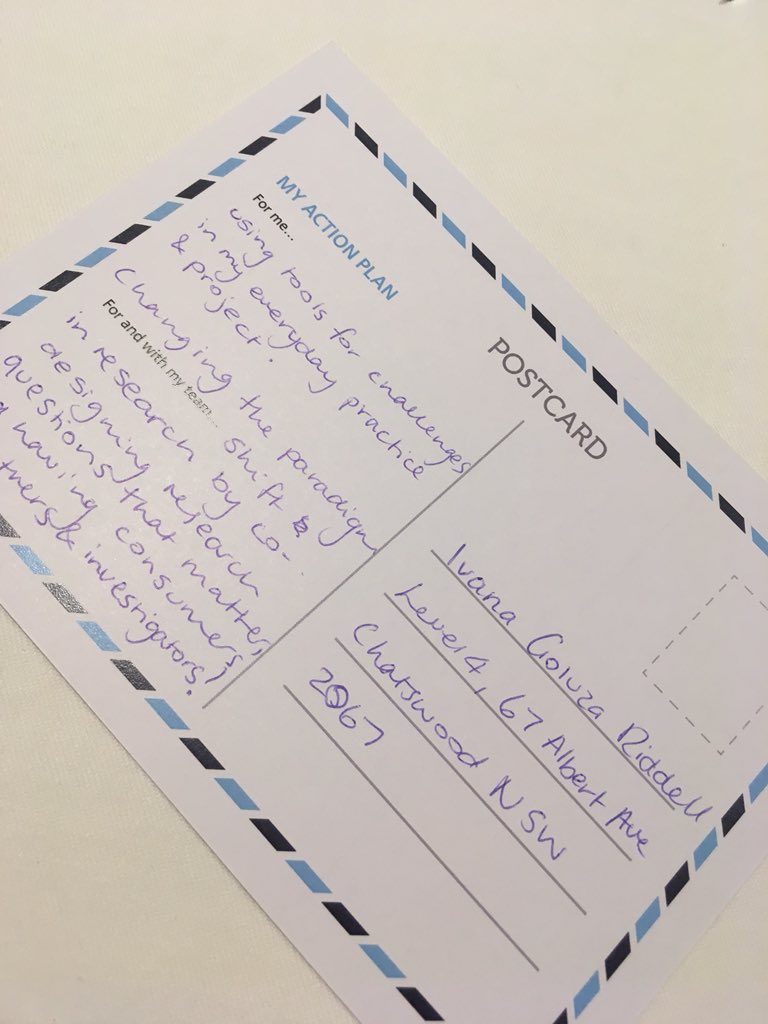 MY ACTION PLAN
For me...
using tools for challenges
in my everyday practice
& project.
For and with my team...
Changing the paradigm
shift
in research by co-
designing research
questions that matter,
having consumers
& investigators!
POSTCARD
Ivana Goluza Riddell
Level 4, 67 Albert Ave
Chatswood NSW
2067